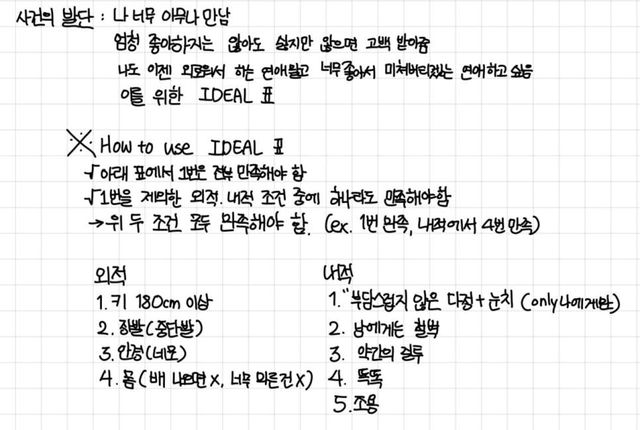 사건의 발단 : 나 너무 아무나 만남
엄청 좋아하지는 않아도 싫지만 않으면 고백 받아줌
나도 이젠 외로워서 하는 연애말고 너무 좋아서 미쳐버리겠는 연애하고 싶음
이를 위한 IDEAL 표
※ How to use IDEAL 표
√ 아래 표에서 1번은 전부 만족해야 함
√ 1번을 제외한 외적, 내적 조건 중에 하나라도 만족해야함
→ 위 두 조건 모두 만족해야 함. (ex. 1번 만족, 내적에서 4번 만족)
외적
1. 키 180cm 이상
2. 장발(중단발)
3. 안경(네모)
4. 몸 (배 나오면 X, 너무 마른건 X)
내적
1. "부담스럽지 않은 다정 + 눈치 (only 나에게만)
2. 남에게는 철벽
3. 약간의 질투
4. 똑똑
5. 조용